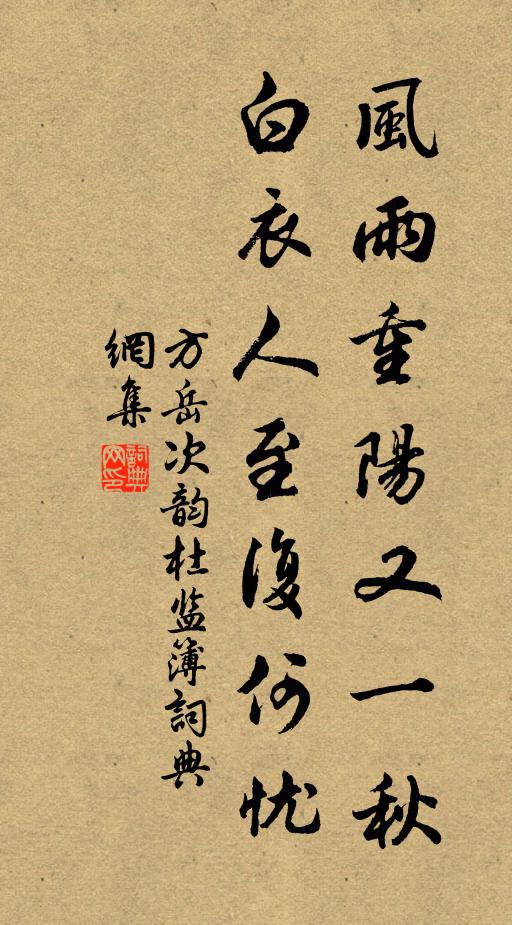 風雨重陽又一秋
白衣人至復何忧
方岳次韵杜监簿詞典
網集
詞典网印